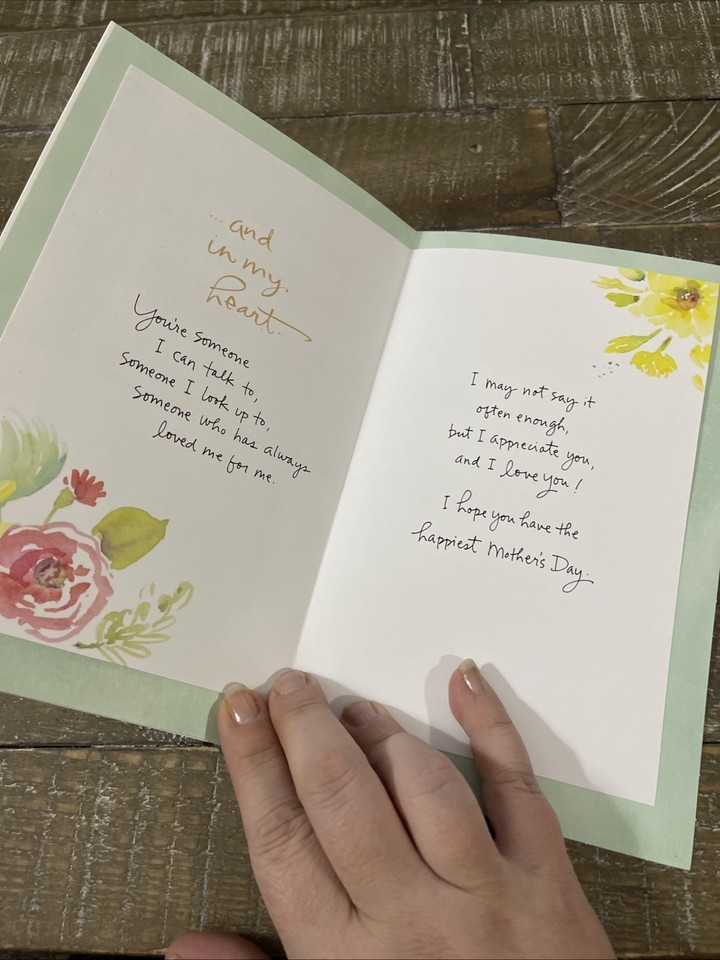 ...and
in my
heart.
You're someone
I can talk to,
someone I look up to,
someone who has always
loved me for me.
I may not say it
often enough,
but I appreciate you,
and I love you!
I hope you have the
happiest Mother's Day.